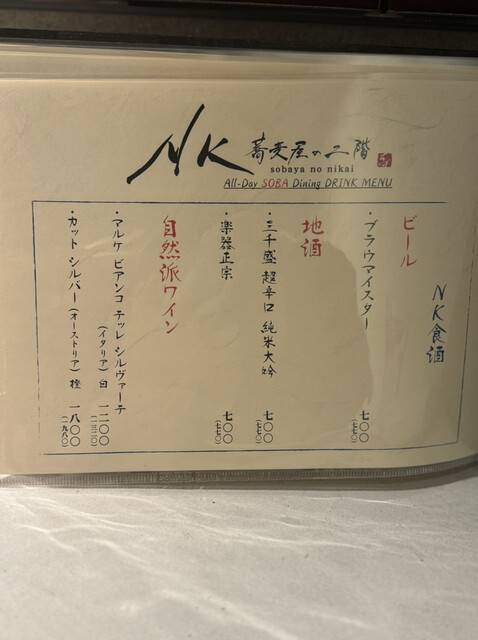 NK 蕎麦屋の二階
sobaya no nikai
All-Day SOBA Dining DRINK MENU
NK食酒
ビール
・ブラウマイスター 七〇〇
(七七〇)
地酒
・三千盛 超辛口 純米大吟 七〇〇
(七七〇)
・楽器正宗 七〇〇
(七七〇)
自然派ワイン
・マルケ ビアンコ テッレ シルヴァーテ
(イタリア) 白 一二〇〇
(一三二〇)
・カット シルバー (オーストリア) 橙 一八〇〇
(一九八〇)